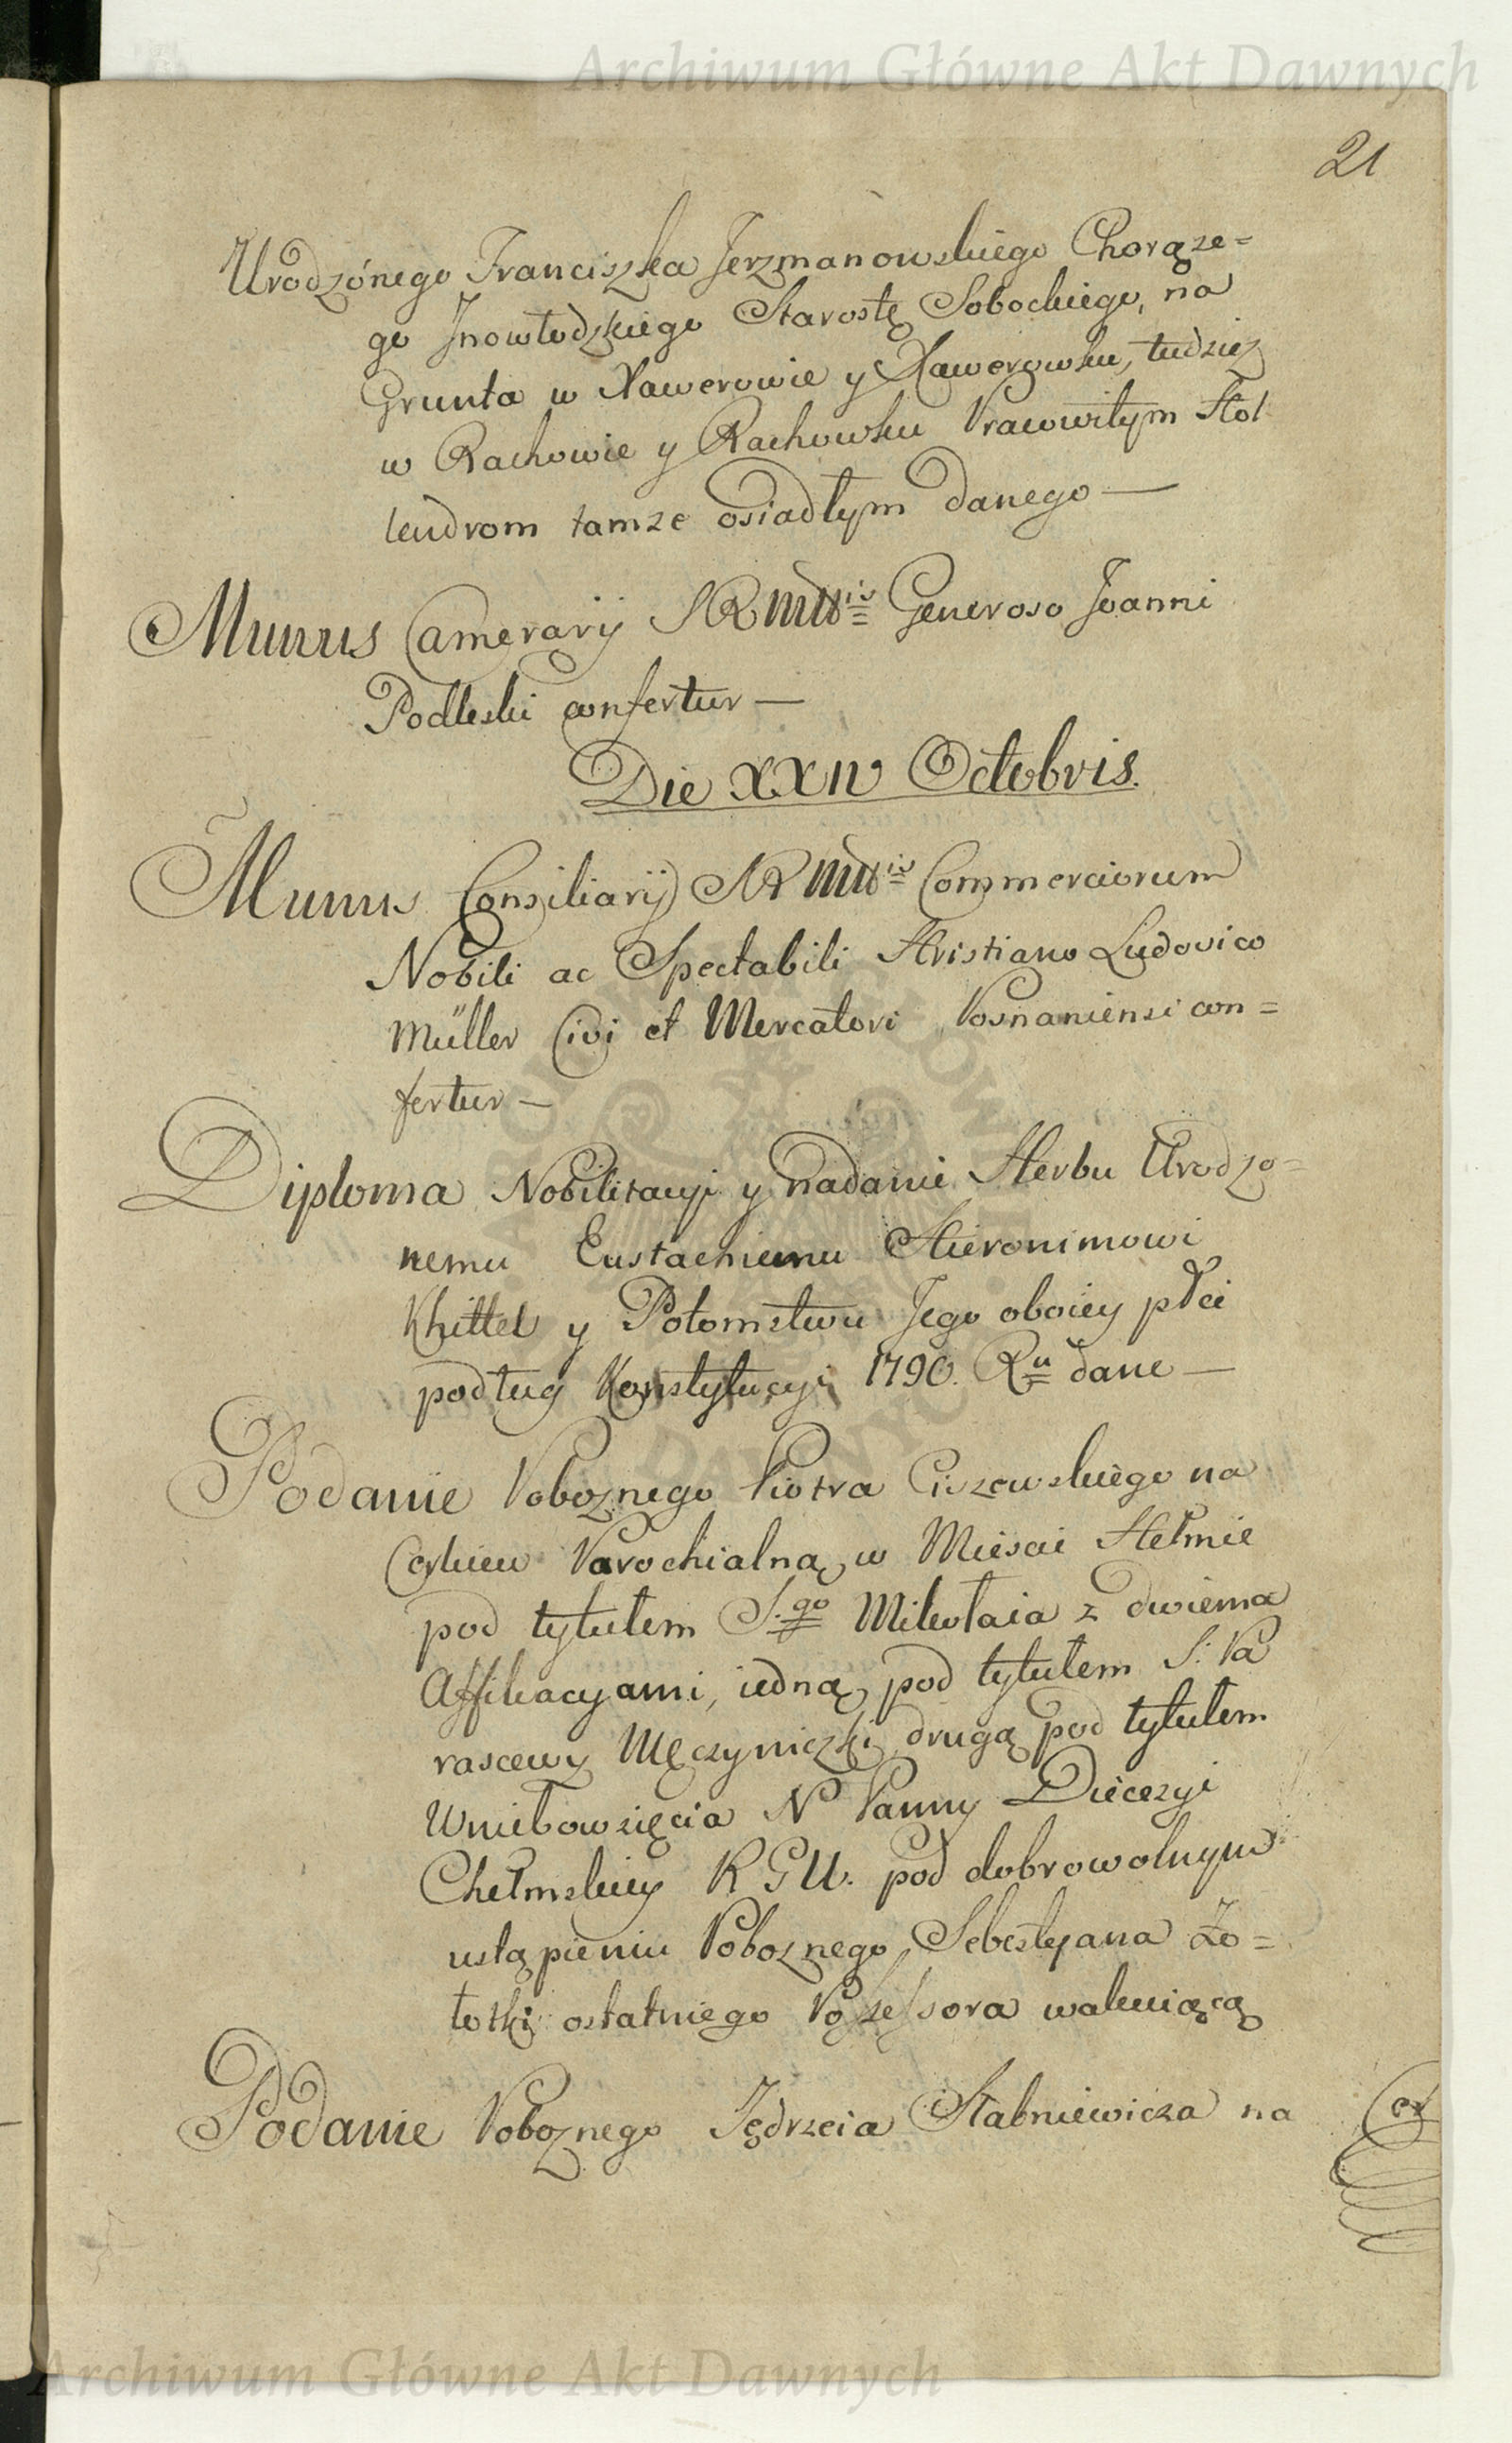 Archiwum Główne Akt Dawnych
21
Urodzónego Franciszka Jerzmanowskiego Chorąże=
go Jnowłodzkiego Starostę Sobockiego, na
Grunta w Xawerowie y Xawerowku, tudziez
w Rachowie y Rachowku Prawowitym Hol
lendrom tamze osiadłym danego —
Munus Camerarij SRMttis Generoso Joanni
Podleski confertur —
Die XXIV Octobris.
Munus Consiliarij SRMttis Commerciorum
Nobili ac Spectabili Hristiano Ludovico
Müller Civi et Mercatori Posnaniensi con=
fertur —
Diploma Nobilitacyi y nadanie Herbu Urodzo=
nemu Eustachiemu Hieronimowi
Khittel y Potomstwu Jego oboiey płci
podług Konstytucyi 1790. Ru dane —
Podanie Poboznego Piotra Ciszewskiego na
Cerkiew Parochialną w Miescie Hełmie
pod tytułem S.go Mikołaia z dwiema
Affiliacyami, iedną pod tytułem S: Pa
rascewy Męczyniczki drugą pod tytułem
Wniebowzięcia N Panny Diecezyi
Chełmskiey RGU. pod dobrowolnym
ustąpieniu Poboznego Sebestyana Zo=
łotki ostatniego Possessora wakuiącą
Podanie Poboznego Jędrzeia Stabniewicza na
Cer
Archiwum Główne Akt Dawnych